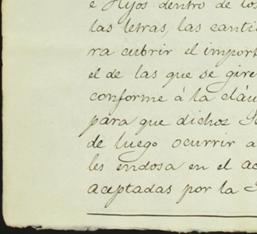 é Hijos dentro de los
las letras, las canti
ra cubrir el import
el de las que se gire
conforme á la cláu
para que dichos S
de luego ocurrir a
les endosa en el ac
aceptadas por la